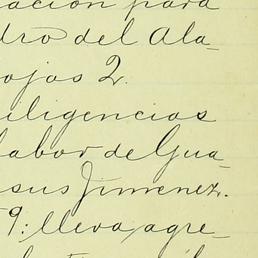 ación para
dro del Ala-
ojos 2.
iligencias
labor de Gua-
sus Jimenez.
9: lleva agre-